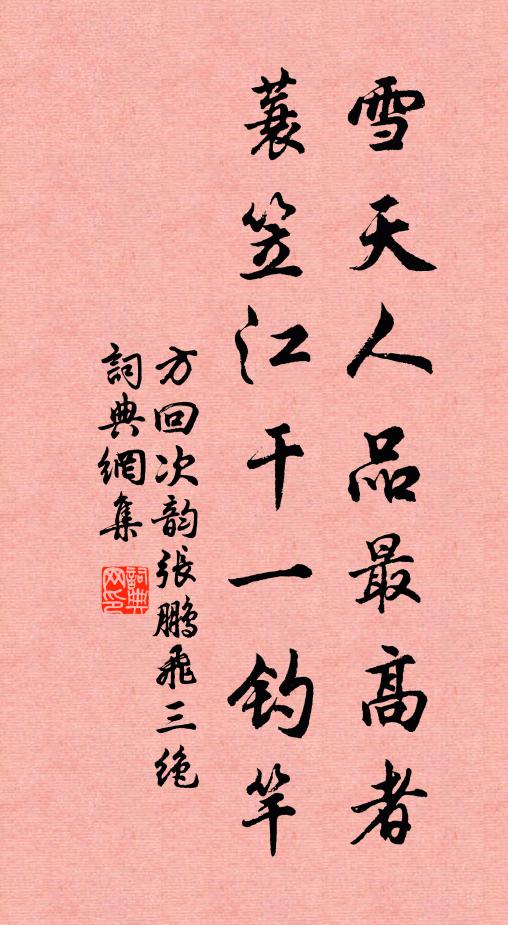 雪天人品最高者
蓑笠江干一钓竿
方回次韵張鵬飛三绝
詞典網集
詞典网印